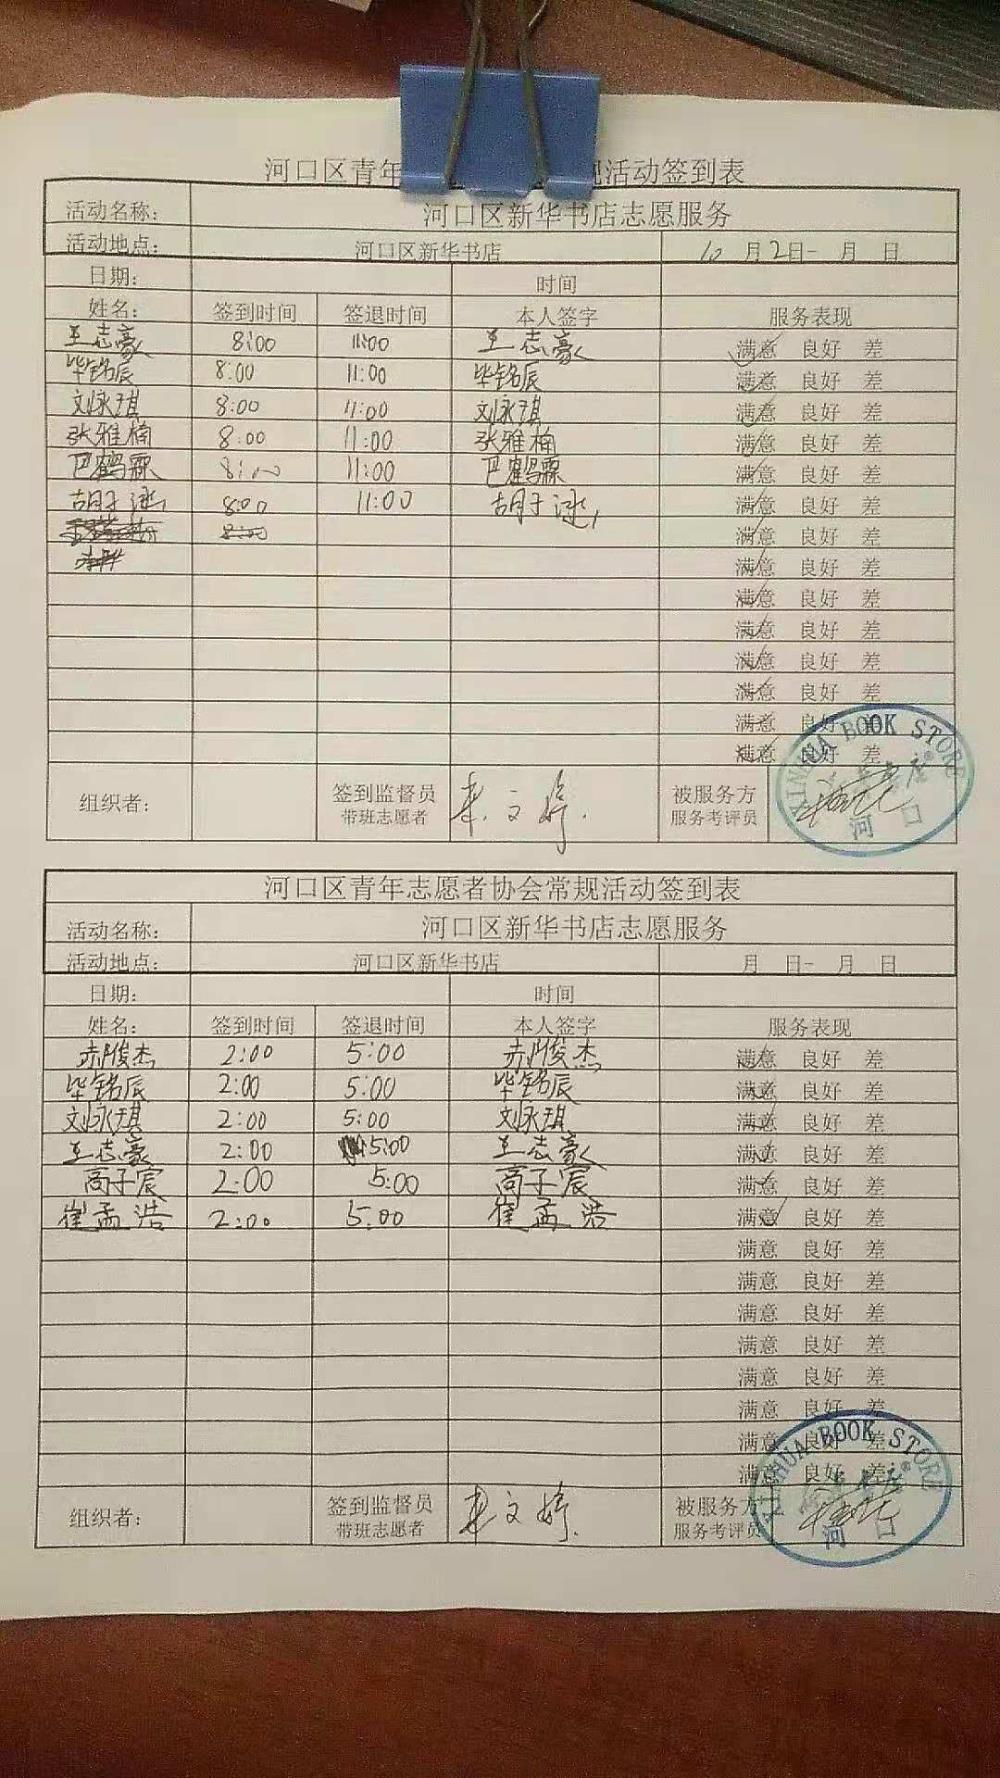 河口区青年 规活动签到表
活动名称: 河口区新华书店志愿服务
活动地点: 河口区新华书店 10 月 2日- 月 日
日期: 时间
姓名: 签到时间 签退时间 本人签字 服务表现
王志豪 8:00 11:00 王志豪 满意 良好 差
毕铭辰 8:00 11:00 毕铭辰 满意 良好 差
刘永琪 8:00 11:00 刘永琪 满意 良好 差
张雅楠 8:00 11:00 张雅楠 满意 良好 差
巴鹤霖 8:00 11:00 巴鹤霖 满意 良好 差
胡子 8:00 11:00 胡子 满意 良好 差
8:00 满意 良好 差
满意 良好 差
满意 良好 差
满意 良好 差
满意 良好 差
满意 良好 差
满意 良好 差
满意 良好 差
组织者: 签到监督员 文婷 被服务方
带班志愿者 服务考评员
XINHUA BOOK STORE
河口
河口区青年志愿者协会常规活动签到表
活动名称: 河口区新华书店志愿服务
活动地点: 河口区新华书店 月 日- 月 日
日期: 时间
姓名: 签到时间 签退时间 本人签字 服务表现
俊杰 2:00 5:00 俊杰 满意 良好 差
毕铭辰 2:00 5:00 毕铭辰 满意 良好 差
刘永琪 2:00 5:00 刘永琪 满意 良好 差
王志豪 2:00 5:00 王志豪 满意 良好 差
高子宸 2:00 5:00 高子宸 满意 良好 差
崔孟浩 2:00 5:00 崔孟浩 满意 良好 差
满意 良好 差
满意 良好 差
满意 良好 差
满意 良好 差
满意 良好 差
满意 良好 差
满意 良好 差
满意 良好 差
组织者: 签到监督员 文婷 被服务方
带班志愿者 服务考评员
XINHUA BOOK STORE
河口